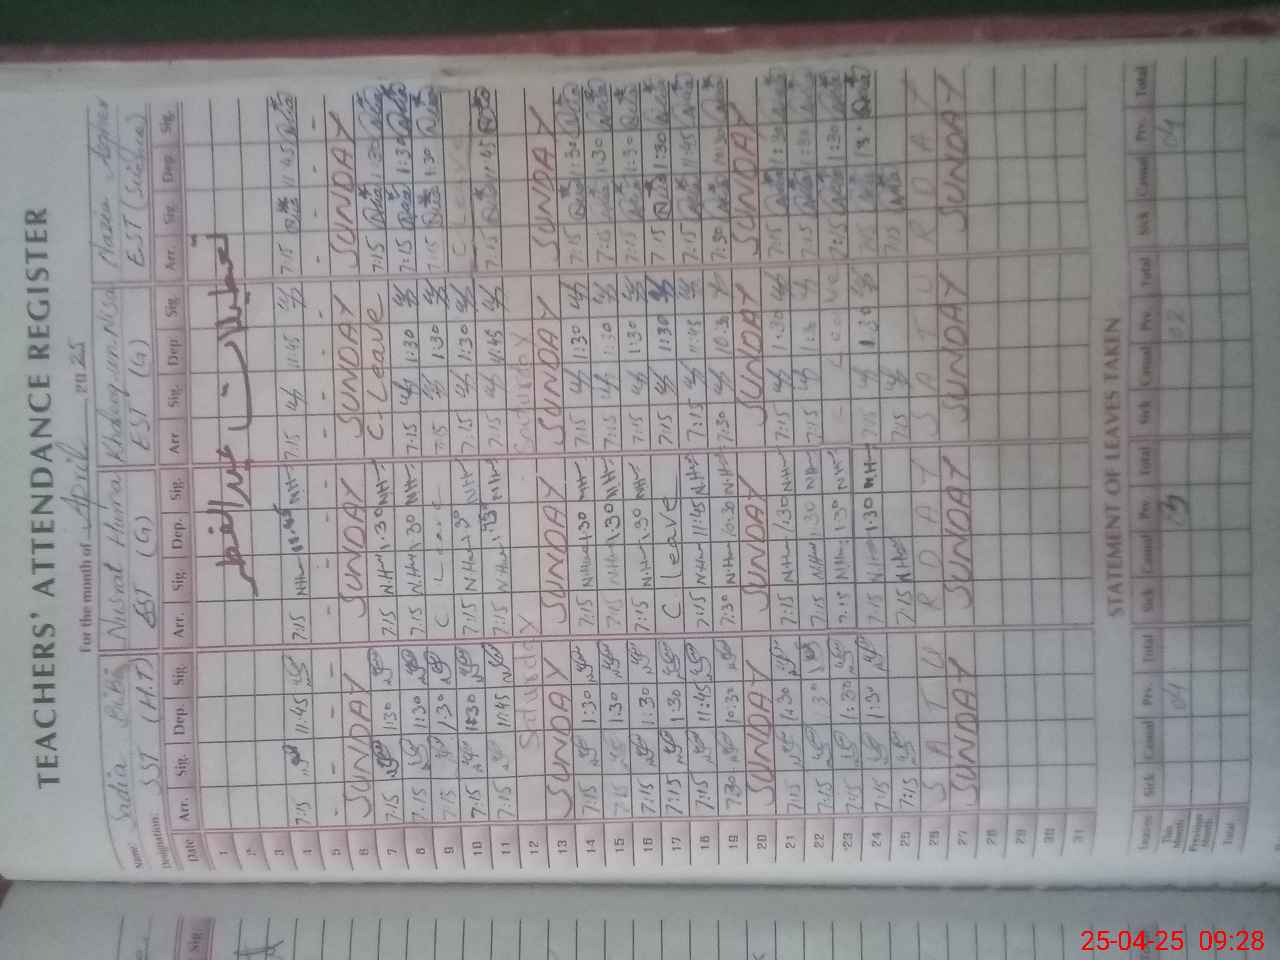 TEACHERS' ATTENDANCE REGISTER
For the month of April 2025
Name: Sadia Bibi Nusrat Huma Khdeeja un Nisa Nazia
Designation: SST (H.T) EST (G) EST (G) EST (Science)
Date Arr. Sig. Dep. Sig. Arr. Sig Dep. Sig. Arr Sig. Dep. Sig Arr. Sig. Dep. Sig.
1 تعطیلات عید الفطر
2
3
4 7:15 11:45 7:15 N.H 11:45 N.H 7:15 11:45 7:15 11:45
5 - - - - - - - - - - - - - - - -
6 SUNDAY SUNDAY SUNDAY SUNDAY
7 7:15 1:30 7:15 N.H 1:30 N.H C-Leave 7:15 1:30
8 7:15 1:30 7:15 N.H 1:30 N.H 7:15 1:30 7:15 1:30
9 7:15 1:30 C Leave 7:15 1:30 7:15 1:30
10 7:15 7:15 N.H 1:30 N.H 7:15 1:30 C Leave
11 7:15 11:45 7:15 N.H N.H 7:15 11:45 7:15 11:45
12 Saturday Saturday
13 SUNDAY SUNDAY SUNDAY SUNDAY
14 7:15 1:30 7:15 N.H 1:30 N.H 7:15 1:30 7:15 1:30
15 7:15 1:30 7:15 N.H 1:30 N.H 7:15 1:30 7:15 1:30
16 7:15 1:30 7:15 N.H 1:30 N.H 7:15 1:30 7:15 1:30
17 7:15 1:30 C. Leave 7:15 1:30 7:15 1:30
18 7:15 11:45 7:15 N.H 11:45 N.H 7:15 11:45 7:15 11:45
19 7:30 10:30 7:30 N.H 10:30 N.H 7:30 10:30 7:30 10:30
20 SUNDAY SUNDAY SUNDAY SUNDAY
21 7:15 1:30 7:15 N.H 1:30 N.H 7:15 1:30 7:15 1:30
22 7:15 1:30 7:15 N.H 1:30 N.H 7:15 1:30 7:15 1:30
23 7:15 1:30 7:15 N.H 1:30 N.H C Leave 7:15 1:30
24 7:15 1:30 7:15 N.H 1:30 N.H 7:15 1:30 7:15 1:30
25 7:15 7:15 N.H 7:15 7:15
26 SATURDAY SATURDAY
27 SUNDAY SUNDAY SUNDAY SUNDAY
28
29
30
31
STATEMENT OF LEAVES TAKEN
Leaves Sick Casual Prv. Total Sick Casual Prv. Total Sick Casual Prv. Total Sick Casual Prv. Total
This Month 04 02 04
Previous Month
Total
Sig.
25-04-25 09:28